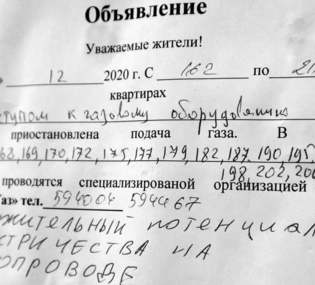 Объявление
Уважаемые жители!
12 2020 г. С 162 по
квартирах
ступом к газовому оборудованию
приостановлена подача газа. В
168, 169, 170, 172, 175, 177, 179, 182, 187, 190, 195,
198, 202, 20
проводятся специализированой организацией
аз» тел. 594004 594467
жительный потенциал
стричества на
опроводе